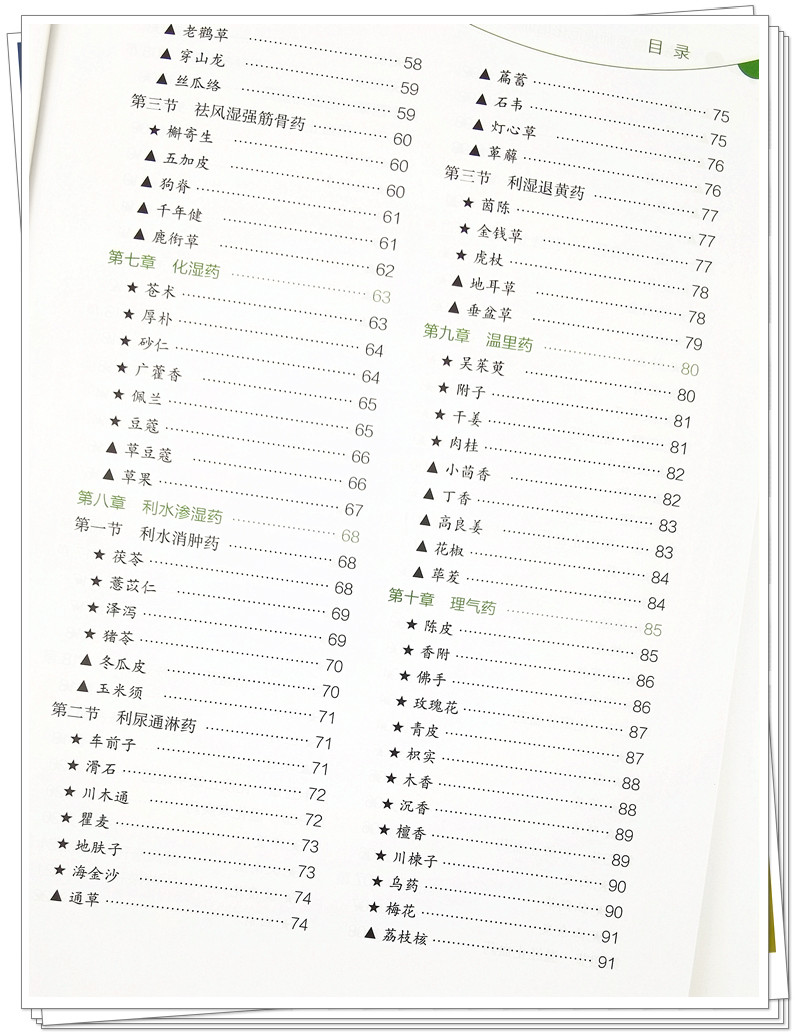 目录
▲ 老鹳草 58
▲ 穿山龙 59
▲ 丝瓜络 59
第三节 祛风湿强筋骨药 60
★ 槲寄生 60
▲ 五加皮 60
▲ 狗脊 61
▲ 千年健 61
▲ 鹿衔草 62
第七章 化湿药 63
★ 苍术 63
★ 厚朴 64
★ 砂仁 64
★ 广藿香 65
★ 佩兰 65
★ 豆蔻 66
▲ 草豆蔻 66
▲ 草果 67
第八章 利水渗湿药 68
第一节 利水消肿药 68
★ 茯苓 68
★ 薏苡仁 69
★ 泽泻 69
★ 猪苓 70
▲ 冬瓜皮 70
▲ 玉米须 71
第二节 利尿通淋药 71
★ 车前子 71
★ 滑石 72
★ 川木通 72
★ 瞿麦 73
★ 地肤子 73
★ 海金沙 74
▲ 通草 74
▲ 萹蓄 75
▲ 石韦 75
▲ 灯心草 76
▲ 萆薢 76
第三节 利湿退黄药 77
★ 茵陈 77
★ 金钱草 77
★ 虎杖 78
▲ 地耳草 78
▲ 垂盆草 79
第九章 温里药 80
★ 吴茱萸 80
★ 附子 81
★ 干姜 81
★ 肉桂 82
▲ 小茴香 82
▲ 丁香 83
▲ 高良姜 83
▲ 花椒 84
▲ 荜茇 84
第十章 理气药 85
★ 陈皮 85
★ 香附 86
★ 佛手 86
★ 玫瑰花 87
★ 青皮 87
★ 枳实 88
★ 木香 88
★ 沉香 89
★ 檀香 89
★ 川楝子 90
★ 乌药 90
★ 梅花 91
▲ 荔枝核 91